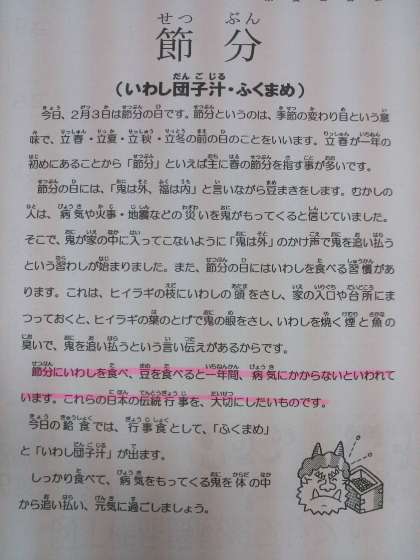 節分
(いわし団子汁・ふくまめ)
今日、2月3日は節分の日です。節分というのは、季節の変わり目という意
味で、立春・立夏・立秋・立冬の前の日のことをいいます。立春が一年の
初めにあることから「節分」といえば主に春の節分を指す事が多いです。
節分の日には、「鬼は外、福は内」と言いながら豆まきをします。むかしの
人は、病気や火事・地震などの災いを鬼がもってくると信じていました。
そこで、鬼が家の中に入ってこないように「鬼は外」のかけ声で鬼を追い払う
という習わしが始まりました。また、節分の日にはいわしを食べる習慣があ
ります。これは、ヒイラギの枝にいわしの頭をさし、家の入口や台所にま
つっておくと、ヒイラギの葉のとげで鬼の眼をさし、いわしを焼く煙と魚の
臭いで、鬼を追い払うという言い伝えがあるからです。
節分にいわしを食べ、豆を食べると一年間、病気にかからないといわれて
います。これらの日本の伝統行事を、大切にしたいものです。
今日の給食では、行事食として、「ふくまめ」
と「いわし団子汁」が出ます。
しっかり食べて、病気をもってくる鬼を体の中
から追い払い、元気に過ごしましょう。